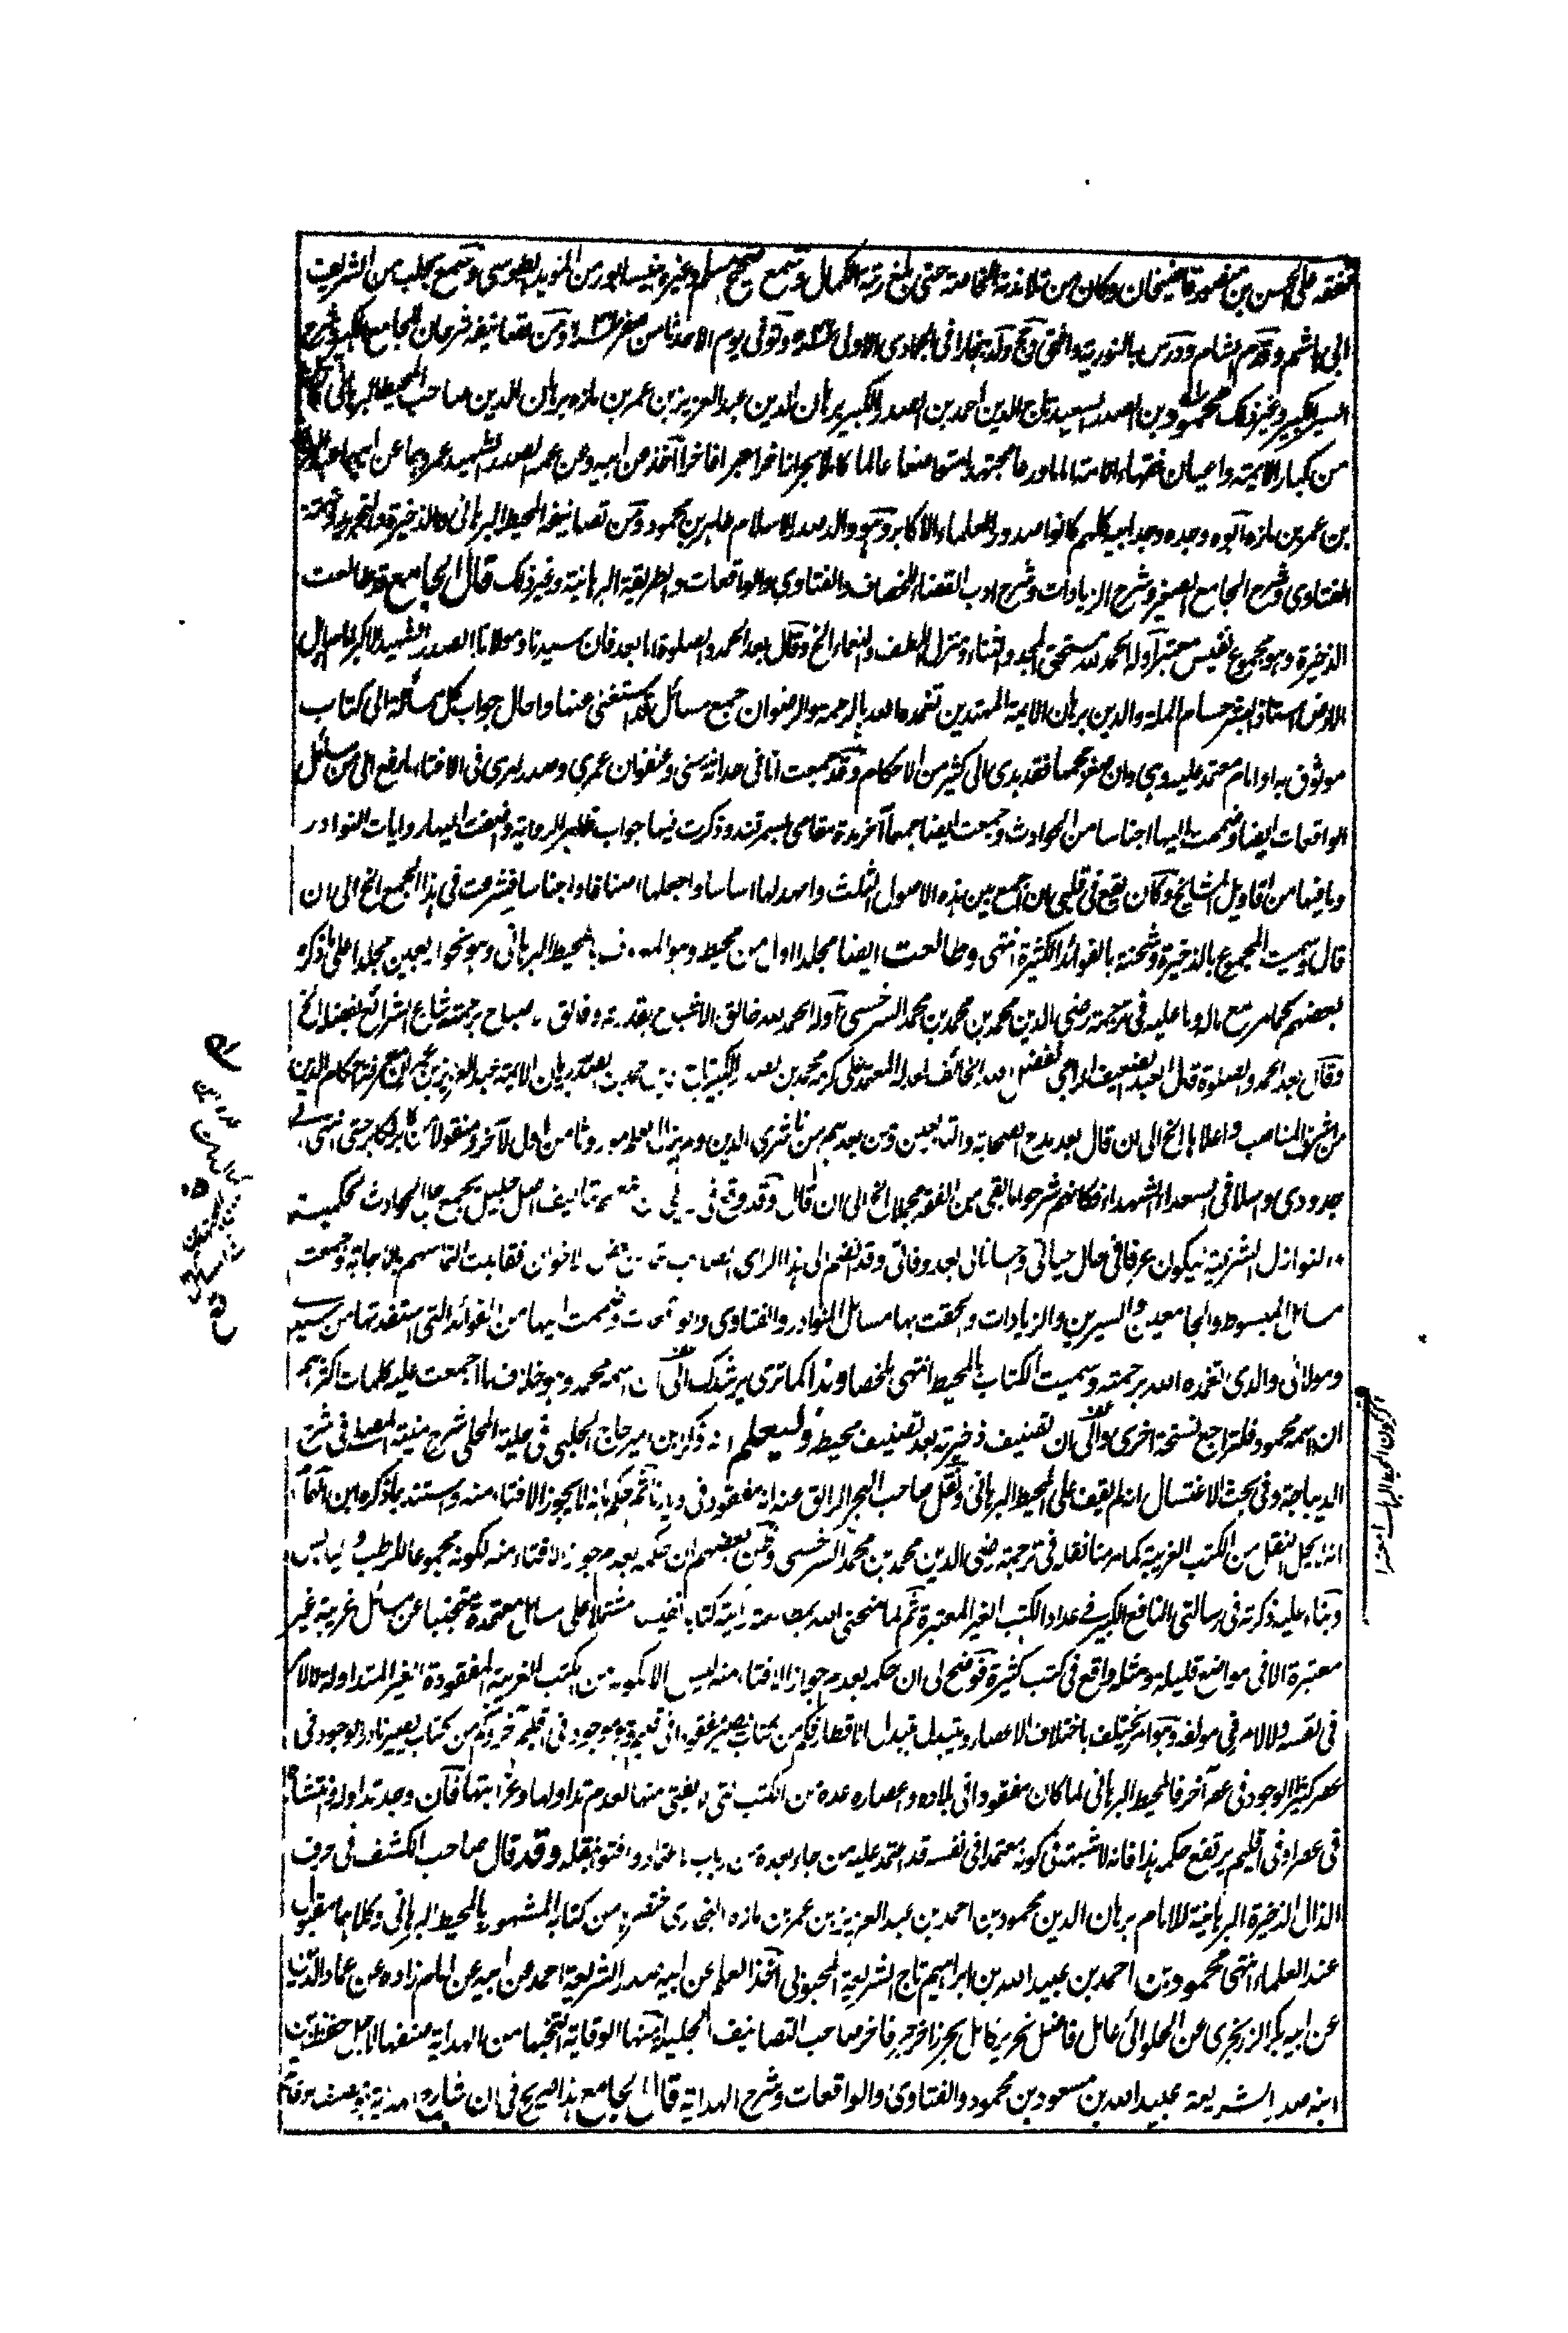 تفقه على الحسن بن منصور قاضيخان وكان من تلامذته الخاصة حتى بلغ رتبة الكمال وسمع صحيح مسلم وغيره بنيسابور من المؤيد الطوسي وسمع بحلب من الشريف
ابي هاشم وقدم الشام ودرس بالنورية وافتى وحج ولد ببخارا في جمادى الاولى وتوفى يوم الاحد ثامن صفر ومن تصانيفه شرحان للجامع الكبير وشرح
السير الكبير وغير ذلك محمود بن الصدر السعيد تاج الدين احمد بن الصدر الكبير برهان الدين عبد العزيز بن عمر بن مازه برهان الدين صاحب المحيط البرهاني كان
من كبار الايمة واعيان فقهاء الامة اماما ورعا مجتهدا متواضعا عالما كاملا بحرا زاخرا حبرا فاخرا آخذ من ابيه وعن عمه الصدر الشهيد عمر وهما عن ابيهما عبد العزيز
بن عمر بن مازه آبوه وجده وجد ابيه كلهم كانوا صدور العلماء الاكابر وهو والد صدر الاسلام طاهر بن محمود ومن تصانيفه المحيط البرهاني والذخيرة والتجريد وتتمة
الفتاوى وشرح الجامع الصغير وشرح الزيادات وشرح ادب القضاء للخصاف والفتاوى والواقعات والطريقة البرهانية وغير ذلك قال الجامع قد طالعت
الذخيرة وهو مجموع نفيس معتبر آوله الحمد لله مستحق الحمد والثناء ومنزل اللطف والنعماء الخ وقال بعد الحمد والصلوة اما بعد فان سيدنا ومولانا الصدر الشهيد الاكبر
الارض استاذ البشر حسام الملة والدين برهان الايمة المهتدين تغمده الله بالرحمة والرضوان جمع مسائل قد استفتى عنها واحال جواب كل مسألة الى كتاب
موثوق به او امام معتمد عليه وهى وان صغر حجمها فقد يهدى الى كثير من الاحكام وقد جمعت انا في حداثة سنى وعنفوان عمرى وصدر امرى فى الافتاء ما رفع الى من مسائل
الواقعات ايضا وضممت اليها اجناسا من الحوادث وجمعت ايضا جمعا آخر مدة مقامى بسمرقند وذكرت فيها جواب ظاهر الرواية واضفت اليها روايات النوادر
وما فيها من اقاويل المشايخ وكان يقع فى قلبى ان اجمع بين هذه الاصول الثلث وامهد لها اساسا واجعلها اصنافا واجناسا فشرعت فى هذا الجمع الخ الى ان
قال وسميت المجموع بالذخيرة وشحنته بالفوائد الكثيرة انتهى وطالعت ايضا مجلدا اول من محيطه وهو المعروف بالمحيط البرهانى وهو نحو اربعين مجلدا على ما ذكره
بعضهم كما مر مع ماله وما عليه فى ترجمة رضي الدين محمد بن محمد بن محمد السرخسى آوله الحمد لله خالق الاشباح بقدرته وفالق الاصباح برحمته شارع الشرائع بفضله الخ
وقال بعد الحمد والصلوة قال العبد الضعيف الراجى لفضل الله الخائف لعدله المعتمد على كرمه محمد بن الصدر الكبير تاج الدين برهان الايمة عبد العزيز بن عمر ان معرفة احكام الدين
من اشرف المناصب واعلاها الخ الى ان قال بعد مدح الصحابة والتابعين ومن بعدهم من ناشرى الدين ولم يزل العلم موروثا من اول لآخر ومنقولا من كابر لكابر حتى انتهى الى
جدودى واسلافى السعداء الشهداء فكانهم شرحوا ما بقى من الفقه مجملا الخ الى ان قال وقد وقع فى رأيي ان اتشبه بهم بتاليف اصل جليل يجمع جل الحوادث الحكمية
والنوازل الشرعية ليكون عونا فى حال حياتى وحسانا لى بعد وفاتى وقد انضم الى هذا الرأى الصائب التماس بعض الاخوان فقابلت التماسهم بالاجابة وجمعت
مسائل المبسوط والجامعين والسيرين والزيادات والحقت بها مسائل النوادر والفتاوى والواقعات وضممت اليها من الفوائد التى استفدتها من سيدى
ومولائى والدى تغمده الله برحمته وسميت الكتاب بالمحيط انتهى ملخصا وهذا كما ترى يرشدك الى ان اسمه محمد وهو خلاف ما اجمعت عليه كلمات اكثرهم
ان اسمه محمود فلتراجع نسخة اخرى والى ان تصنيف ذخيرته بعد تصنيف محيطه وليعلم انه ذكر ابن امير حاج الحلبى فى حلية المحلى شرح منية المصلى فى شرح
الديباجة وفى بحث الاغتسال انه لم يقف على المحيط البرهانى ونقل صاحب البحر الرائق عنه انه مفقود فى ديارنا ثم حكم بانه لا يجوز الافتاء منه واستند بما ذكره ابن الهمام
انه لا يحل النقل من الكتب الغريبة كما مر منا نقله فى ترجمة رضى الدين محمد بن محمد السرخسى وظن بعضهم ان حكمه بعدم جواز الافتاء منه لكونه مجموعا للرطب واليابس
وبناء عليه ذكرته فى رسالتى النافع الكبير فى عداد الكتب الغير المعتبرة ثم لما منحنى الله بمطالعته رأيته كتابا نفيسا مشتملا على مسائل معتمدة متجنبا عن مسائل غريبة غير
معتبرة الا فى مواضع قليلة ومثله واقع فى كتب كثيرة فوضح لى ان حكمه بعدم جواز الافتاء منه ليس الا لكونه من الكتب الغريبة المفقودة الغير المتداولة لا لامر
فى نفسه ولا لامر فى مولفه وهو امر يختلف باختلاف الاعصار ويتبدل بتبدل الاقطار فكم من كتاب يصير مفقودا فى اقليم وهو موجود فى اقليم آخر وكم من كتاب يصير نادر الوجود فى
عصر كثير الوجود فى عصر آخر فالمحيط البرهانى لما كان مفقودا فى بلاده واعصاره عده من الكتب التى لا يفتى منها لعدم تداولها وغرابتها فان وجد تداوله وانتشاره
فى عصر او فى اقليم يرتفع حكمه هذا فانه لا شبهة فى كونه معتمدا فى نفسه قد اعتمد عليه من جاء بعده من ارباب الاعتماد وافتوا بنقله وقد قال صاحب الكشف فى حرف
الذال الذخيرة البرهانية للامام برهان الدين محمود بن احمد بن عبد العزيز بن عمر بن مازه البخارى اختصرها من كتابه المشهور بالمحيط البرهانى وكلاهما مقبول
عند العلماء انتهى محمود بن احمد بن عبيد الله بن ابراهيم تاج الشريعة المحبوبى آخذ العلم عن ابيه صدر الشريعة احمد عن ابيه عن امام زاده عن عماد الدين
عن ابيه بكر الزرنجرى عن الحلوائى عالم فاضل نحرير كامل بحر زاخر حبر فاخر صاحب التصانيف الجليلة منها الوقاية انتخبها من الهداية صنفها لاجل حفظ ابن
ابنه صدر الشريعة عبيد الله بن مسعود بن محمود والفتاوى والواقعات وشرح الهداية قال الجامع هذا صريح فى ان شارح الهداية ومصنف الوقاية